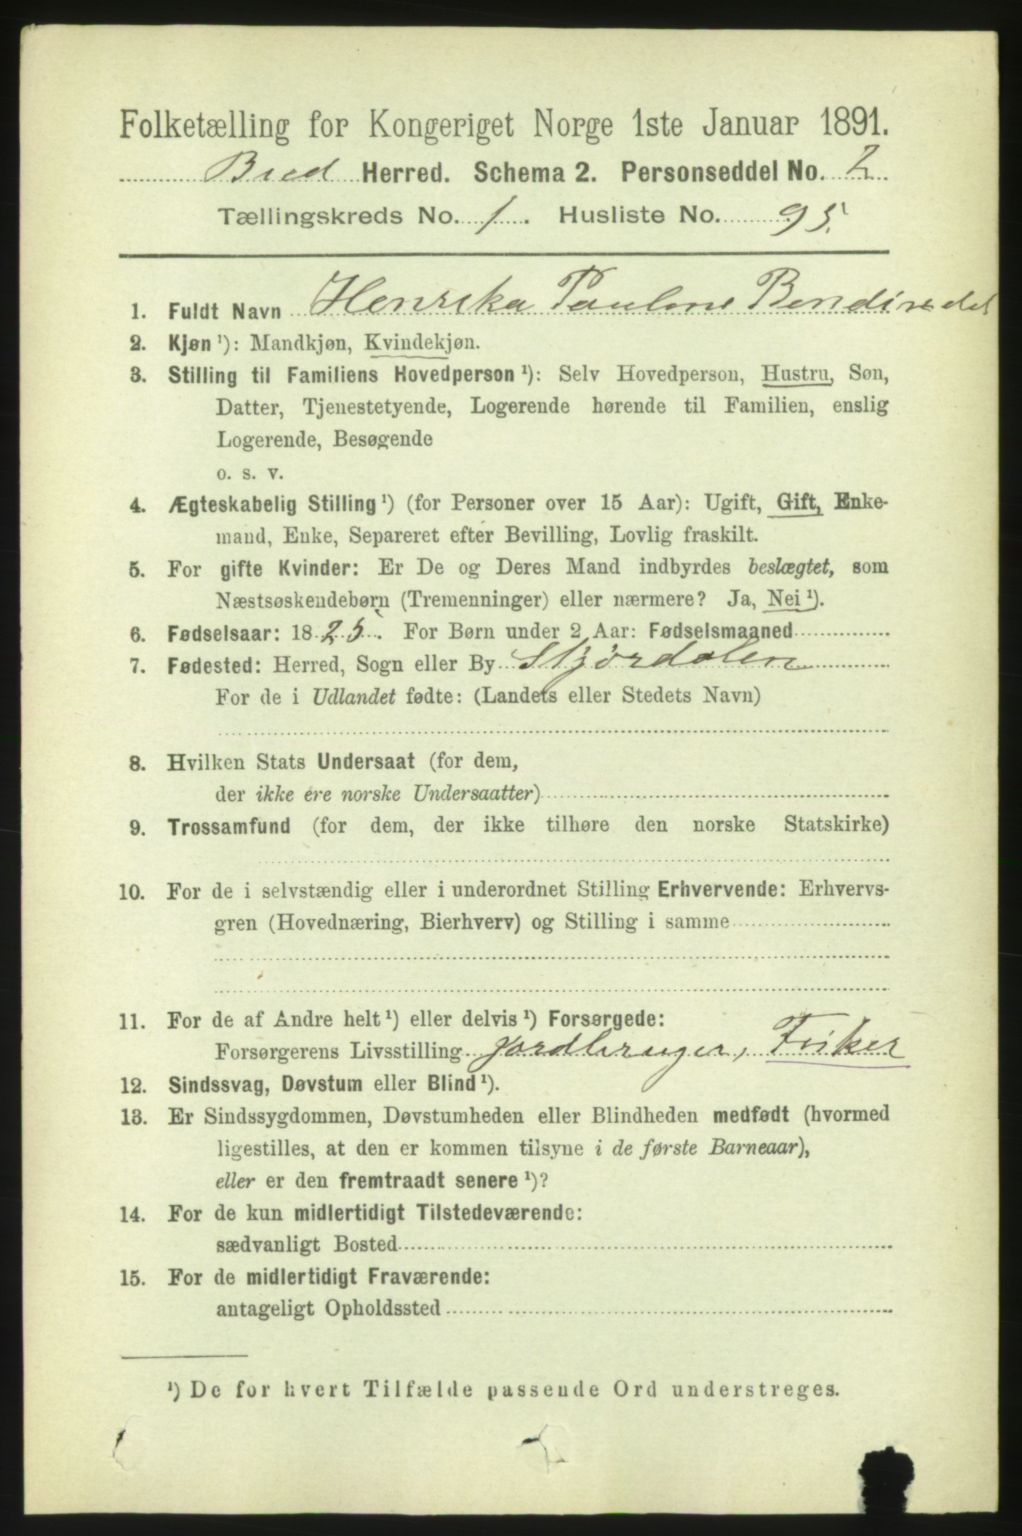 Folketælling for Kongeriget Norge 1ste Januar 1891.
Bud Herred. Schema 2. Personseddel No. 2
Tællingskreds No. 1. Husliste No. 95.
1. Fuldt Navn Henrika Pauline
2. Kjøn ¹): Mandkjøn, Kvindekjøn.
3. Stilling til Familiens Hovedperson ¹): Selv Hovedperson, Hustru, Søn,
Datter, Tjenestetyende, Logerende hørende til Familien, enslig
Logerende, Besøgende
o. s. v.
4. Ægteskabelig Stilling ¹) (for Personer over 15 Aar): Ugift, Gift, Enke-
mand, Enke, Separeret efter Bevilling, Lovlig fraskilt.
5. For gifte Kvinder: Er De og Deres Mand indbyrdes beslægtet, som
Næstsøskendebørn (Tremenninger) eller nærmere? Ja, Nei ¹).
6. Fødselsaar: 1825. For Børn under 2 Aar: Fødselsmaaned
7. Fødested: Herred, Sogn eller By Stjørdalen
For de i Udlandet fødte: (Landets eller Stedets Navn)
8. Hvilken Stats Undersaat (for dem,
der ikke ere norske Undersaatter)
9. Trossamfund (for dem, der ikke tilhøre den norske Statskirke)
10. For de i selvstændig eller i underordnet Stilling Erhvervende: Erhvervs-
gren (Hovednæring, Bierhverv) og Stilling i samme
11. For de af Andre helt ¹) eller delvis ¹) Forsørgede:
Forsørgerens Livsstilling Jordbruger, Fisker
12. Sindssvag, Døvstum eller Blind ¹).
13. Er Sindssygdommen, Døvstumheden eller Blindheden medfødt (hvormed
ligestilles, at den er kommen tilsyne i de første Barneaar),
eller er den fremtraadt senere ¹)?
14. For de kun midlertidigt Tilstedeværende:
sædvanligt Bosted
15. For de midlertidigt Fraværende:
antageligt Opholdssted
¹) De for hvert Tilfælde passende Ord understreges.